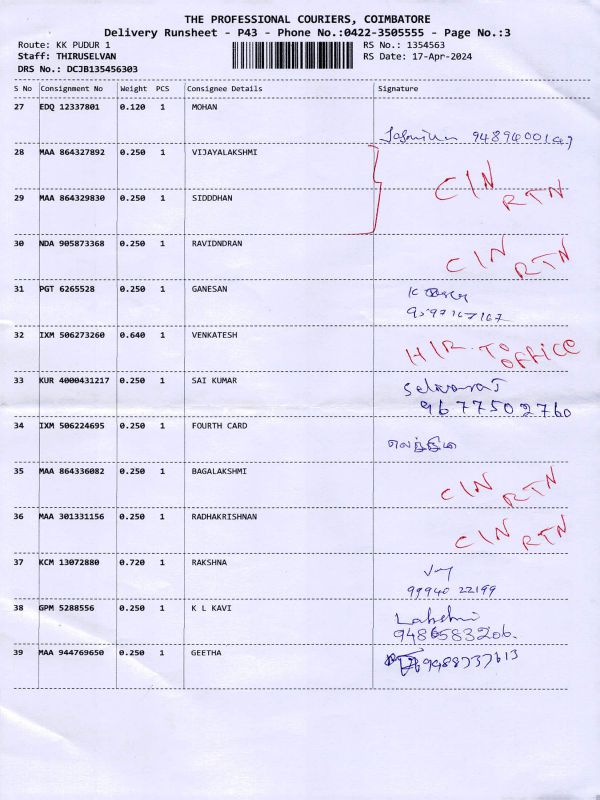 THE PROFESSIONAL COURIERS, COIMBATORE
Delivery Runsheet - P43 - Phone No.:0422-3505555 - Page No.:3
Route: KK PUDUR 1 RS No.: 1354563
Staff: THIRUSELVAN RS Date: 17-Apr-2024
DRS No.: DCJB135456303
S No Consignment No Weight PCS Consignee Details Signature
27 EDQ 12337801 0.120 1 MOHAN
9489400147
28 MAA 864327892 0.250 1 VIJAYALAKSHMI
CIN RTN
29 MAA 864329830 0.250 1 SIDDDHAN
30 NDA 905873368 0.250 1 RAVIDNDRAN
CIN RTN
31 PGT 6265528 0.250 1 GANESAN
K
32 IXM 506273260 0.640 1 VENKATESH
HIR. TO OFFICE
33 KUR 4000431217 0.250 1 SAI KUMAR
Selvaraj
9677502760
34 IXM 506224695 0.250 1 FOURTH CARD
35 MAA 864336082 0.250 1 BAGALAKSHMI
CIN RTN
36 MAA 301331156 0.250 1 RADHAKRISHNAN
CIN RTN
37 KCM 13072880 0.720 1 RAKSHNA
99940 22199
38 GPM 5288556 0.250 1 K L KAVI
Lakshmi
9486583206.
39 MAA 944769650 0.250 1 GEETHA